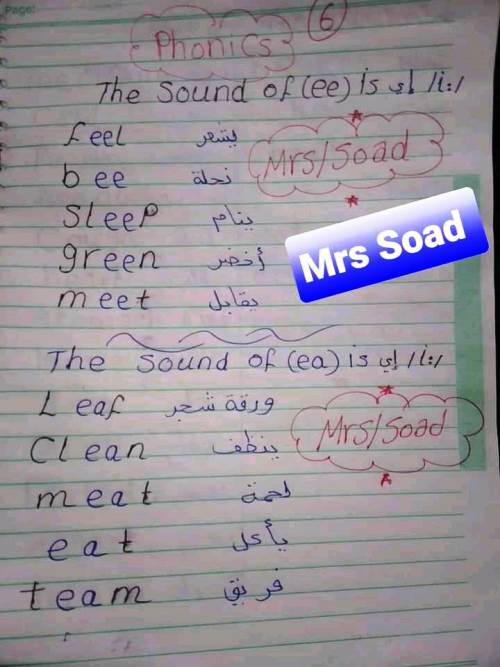 Page:
6
Phonics
The Sound of (ee) is إي /i:/
feel يشعر
Mrs/Soad
bee نحلة
Sleep ينام
green أخضر
Mrs Soad
meet يقابل
The Sound of (ea) is إي /i:/
Leaf ورقة شجر
Mrs/Soad
Clean ينظف
meat لحمة
eat يأكل
team فريق